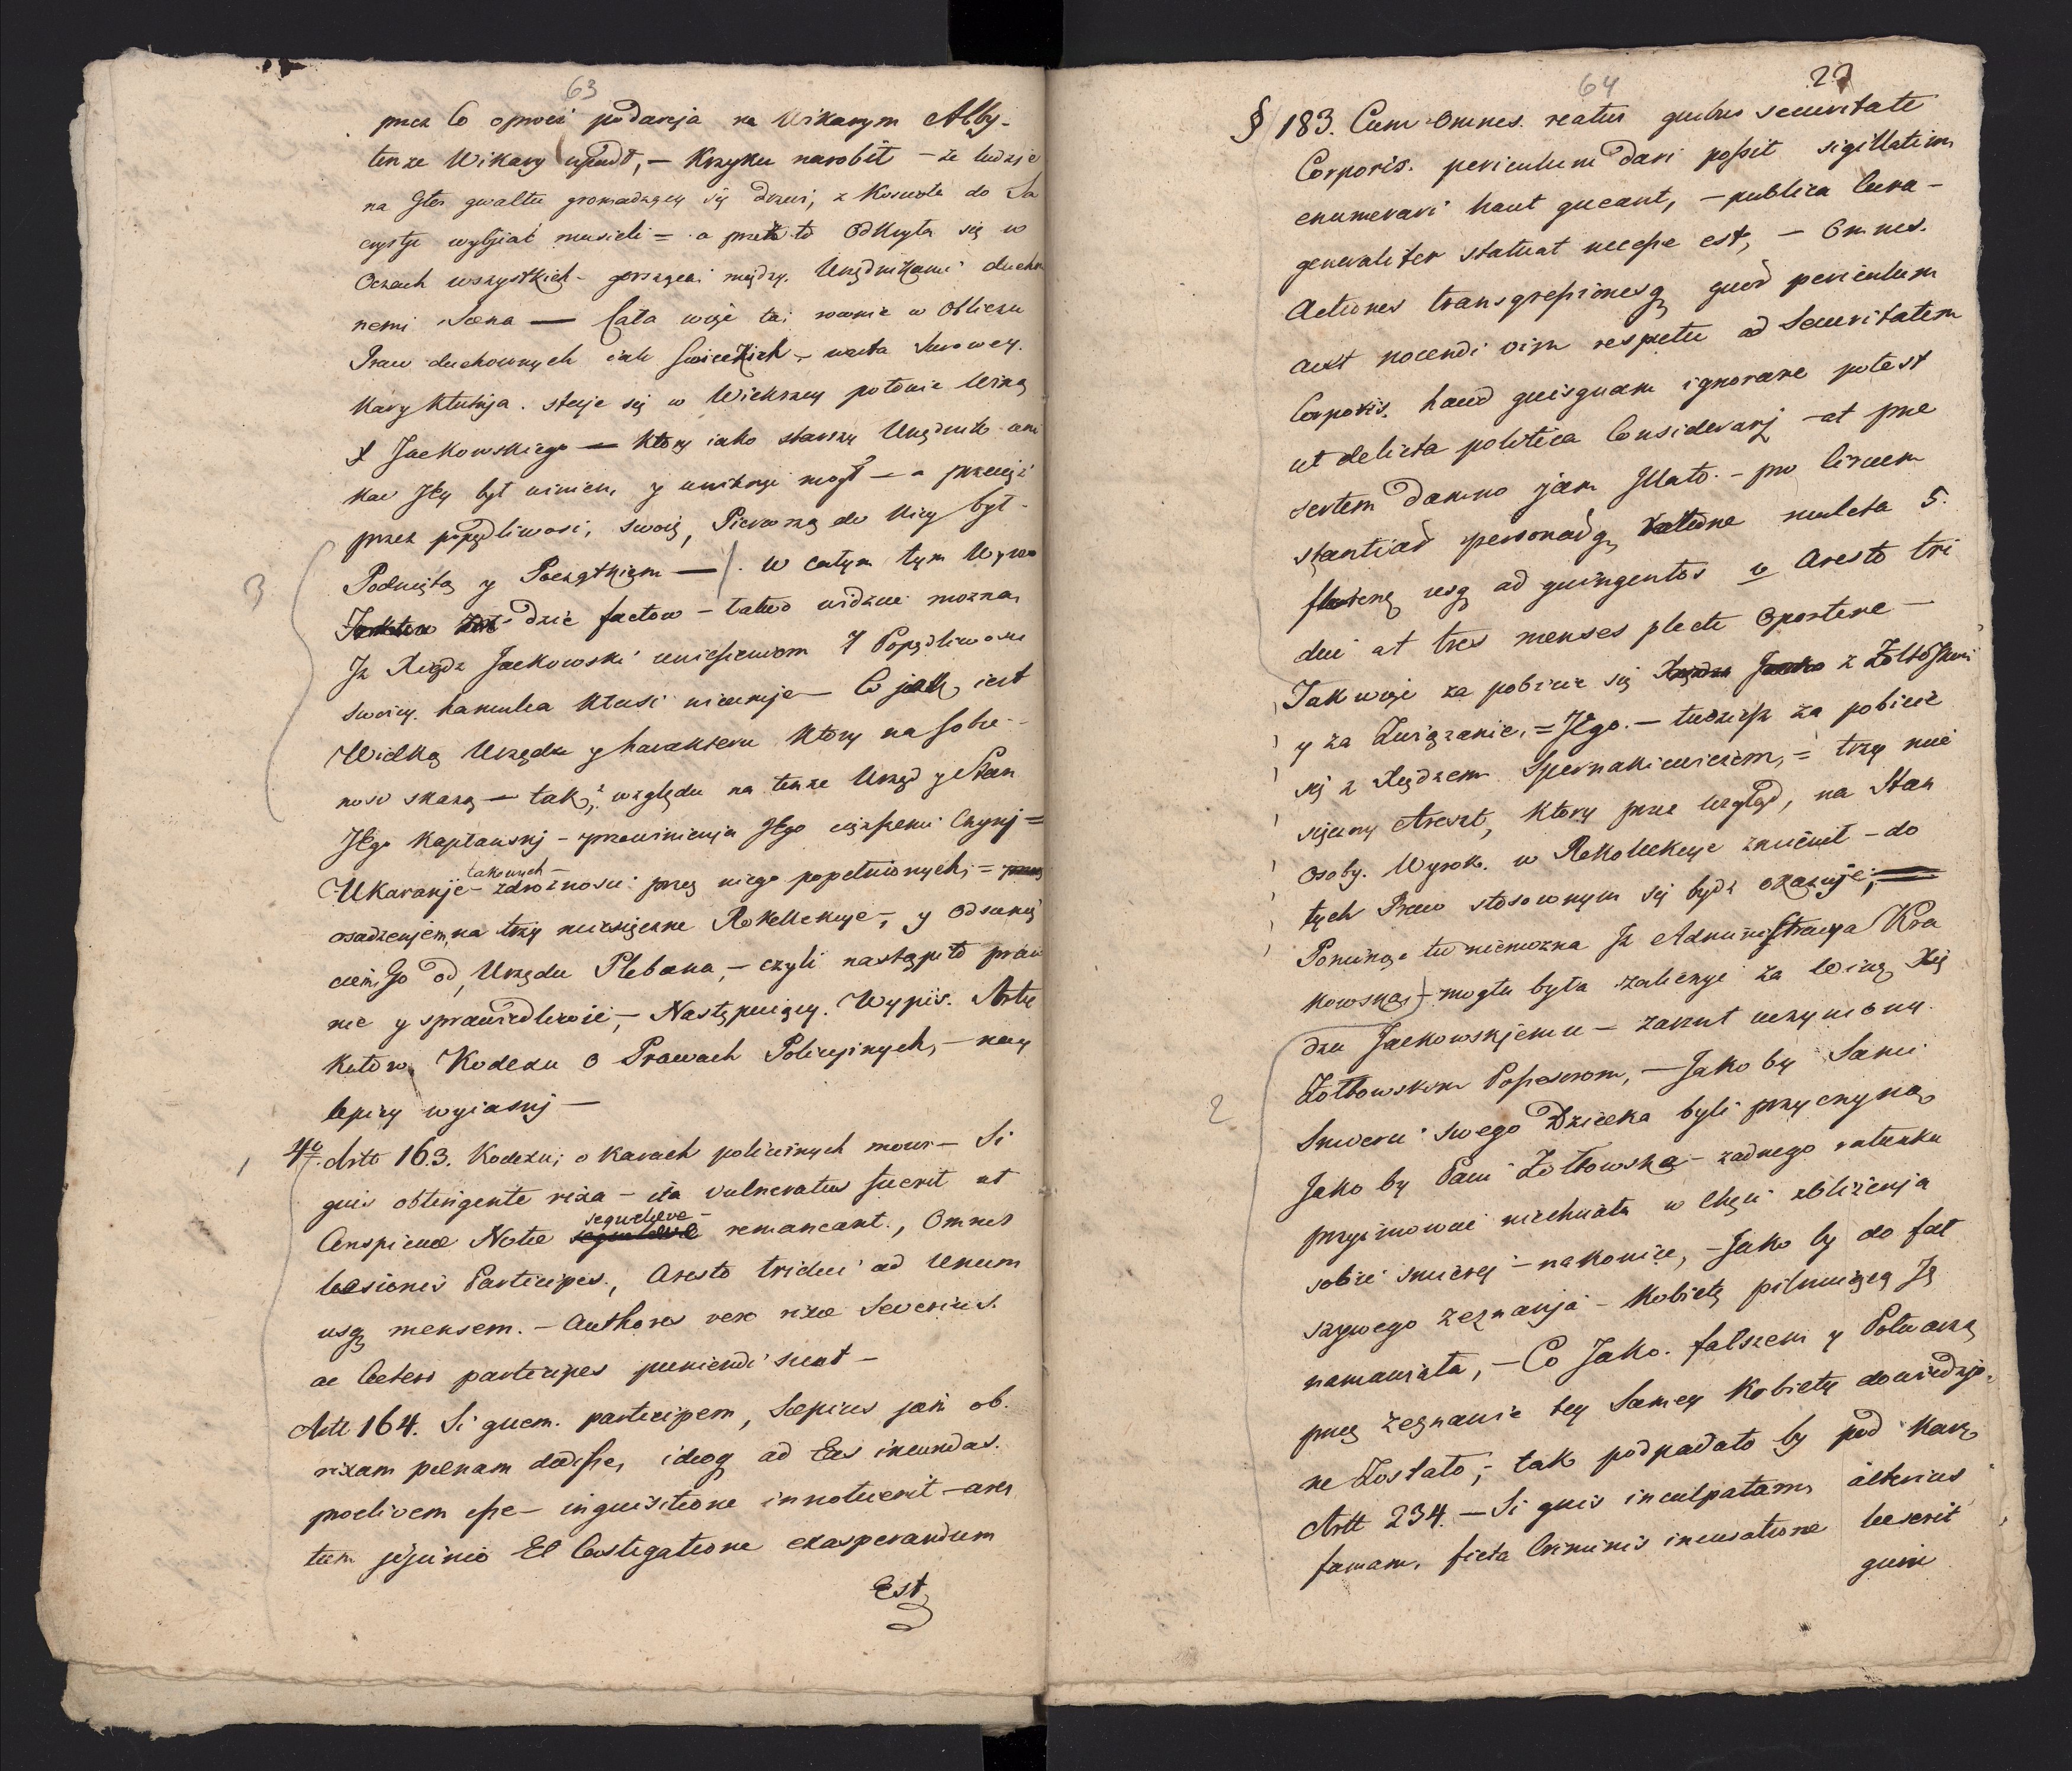 63
przez co oprócz podarcja na Wikarym Alby-
tenże Wikary upadł, — Krzyku narobił — że ludzie
na głos gwałtu gromadzący się drzwi, z Kościoła do Sa
crystyi wybijać musieli = a przeto odkryta się w
Oczach wszystkich - gorsząca między Urzędnikami ducho
nemi Scena — Cała więc ta, rownie w obliczu
Praw duchownych iak Swieckich - warta Surowey
Kary Kłutnja. staje się w Wiekszey połowie Winą
X Jackowskiego — Który iako starszy Urzędnik uni
kac Jey był winien, y uniknąć mógł — a przecięż
przez popędliwość, swoią, Pierwszą do Niey był -
3
Podnietą y Początkiem — . W całym tym Wywo
dzie factow — łatwo widzieć można,
Iż Xiądz Jackowski uniesieniom y Popędliwosci
swoiey hamulca kłaść nieumje — Co jak, iest
Wielką Urzędu y harakteru Który na sobie -
nosi skazą — tak, z względu na tenże Urząd y Stan
Jego Kapłanskj - przewinienja Jego cięższemi Czynj =
takowych -
Ukaranje - zdrożnosci przez niego popełnionych, =
osadzenjem, na trzy miesięczne Rekollekcye -, y odsunię
ciem Go od, Urzędu Plebana, - czyli nastąpiło praw
nie y sprawiedliwie, - Następuiący. Wypis. Artu
kułow, Kodexu o Prawach Policyjnych, - nay
lepiey wyiasnj —
1
4to. Artt 163. Kodexu, o karach policiinych mowi — Si
quis obtingente rixa — ita vulneratus fuerit ut
sequelæve -
Conspicuæ Notæ remaneant., Omnes
læsionis Participes., Aresto tridui ad unum
usq mensem. — Authores vero rixæ Severius.
ac Cætero participes puniendi sunt —
Artt 164. Si quem. participem, Sæpius jam ob.
rixam pœnam dedisse, ideoq ad Eas ineundas.
proclivem esse — inquisitione innotuerit — ares
tum jejunio Et Castigatione exasperandum
Est
64
22
§ 183. Cum Omnes. reatus quibus securitate
Corporis. periculum dari possit sigillatim
enumerari haut queant, — publica Cura —
generaliter statuat necesse est, — Omnes.
Actiones transgressionesq quod periculum
aut nocendi vim respectu ad Securitatem
Corporis. haud quisquam ignorare potest
ut delicta politica Considerarj — at præ
sertem damno jam Jllato. — pro Circum
stantiad personadq ratione mulcta 5.
floreng usq ad quingentos v Aresto tri
dui at tres menses plecti Oportere —
Tak więc za pobicie się z Zołtowskim
y za Związanie, = Jego. — tudzież za pobicie
się z Xiędzem Spernakiewiczem, = trzy mie
sięczny Areszt, Który prze wzgląd, na Stan
Osoby. Wyrok. w Rekollekcye zmienił — do
tych Praw stosownym się bydź okazuje;
Pominąc tu niemozna Iż Administracya Kra
kowską) mogła była zaliczyć za Winę Xię
2
dzu Jackowskjemu — Zarzut uczyniony
Zołtowskim Possesorom, — Jako by Sami
Smierci swego Dziecka byli przyczyną,
Jako by Pani Zołtowska — zadnego ratunku
przyimować niechciała w Chęci zbliżenja
sobie smierci — nakoniec, — Jako by do fał
szywego zeznanja — Kobietę pilnuiącą Ją
namawiała, — Co Jako. fałszem y Potwarzą
przez zeznanie tey Samey Kobiety dowiedzjo,
ne Zostało; — tak podpadało by pod Karę
Artt 234. — Si quis inculpatam alterius
famam, ficta Criminis incusatione læserit
quin